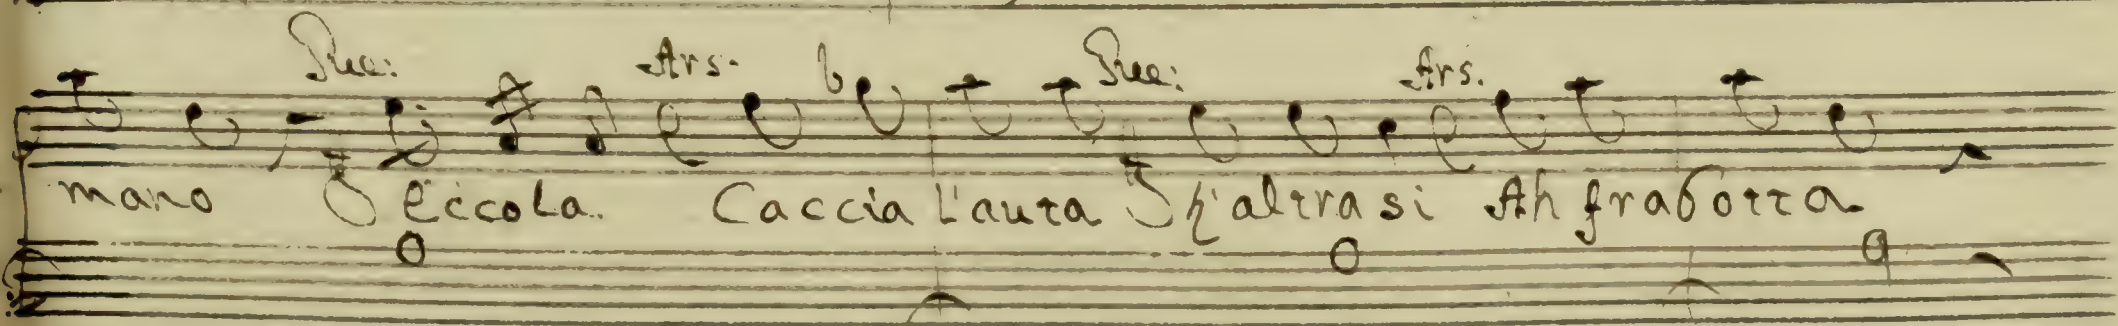 Ars. Ars.
mano Eccola. Caccia l'auta altra si Ah frabotta